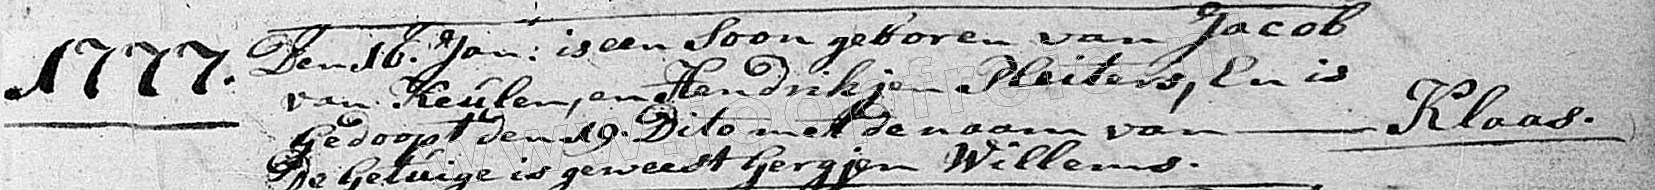 1777. Den 16. Jan: is een Soon geboren van Jacob
van Keulen, en Hendrikjen Pleiters, En is
Gedoopt den 19. Dito met de naam van — Klaas.
De Getuige is geweest Gergjen Willems.